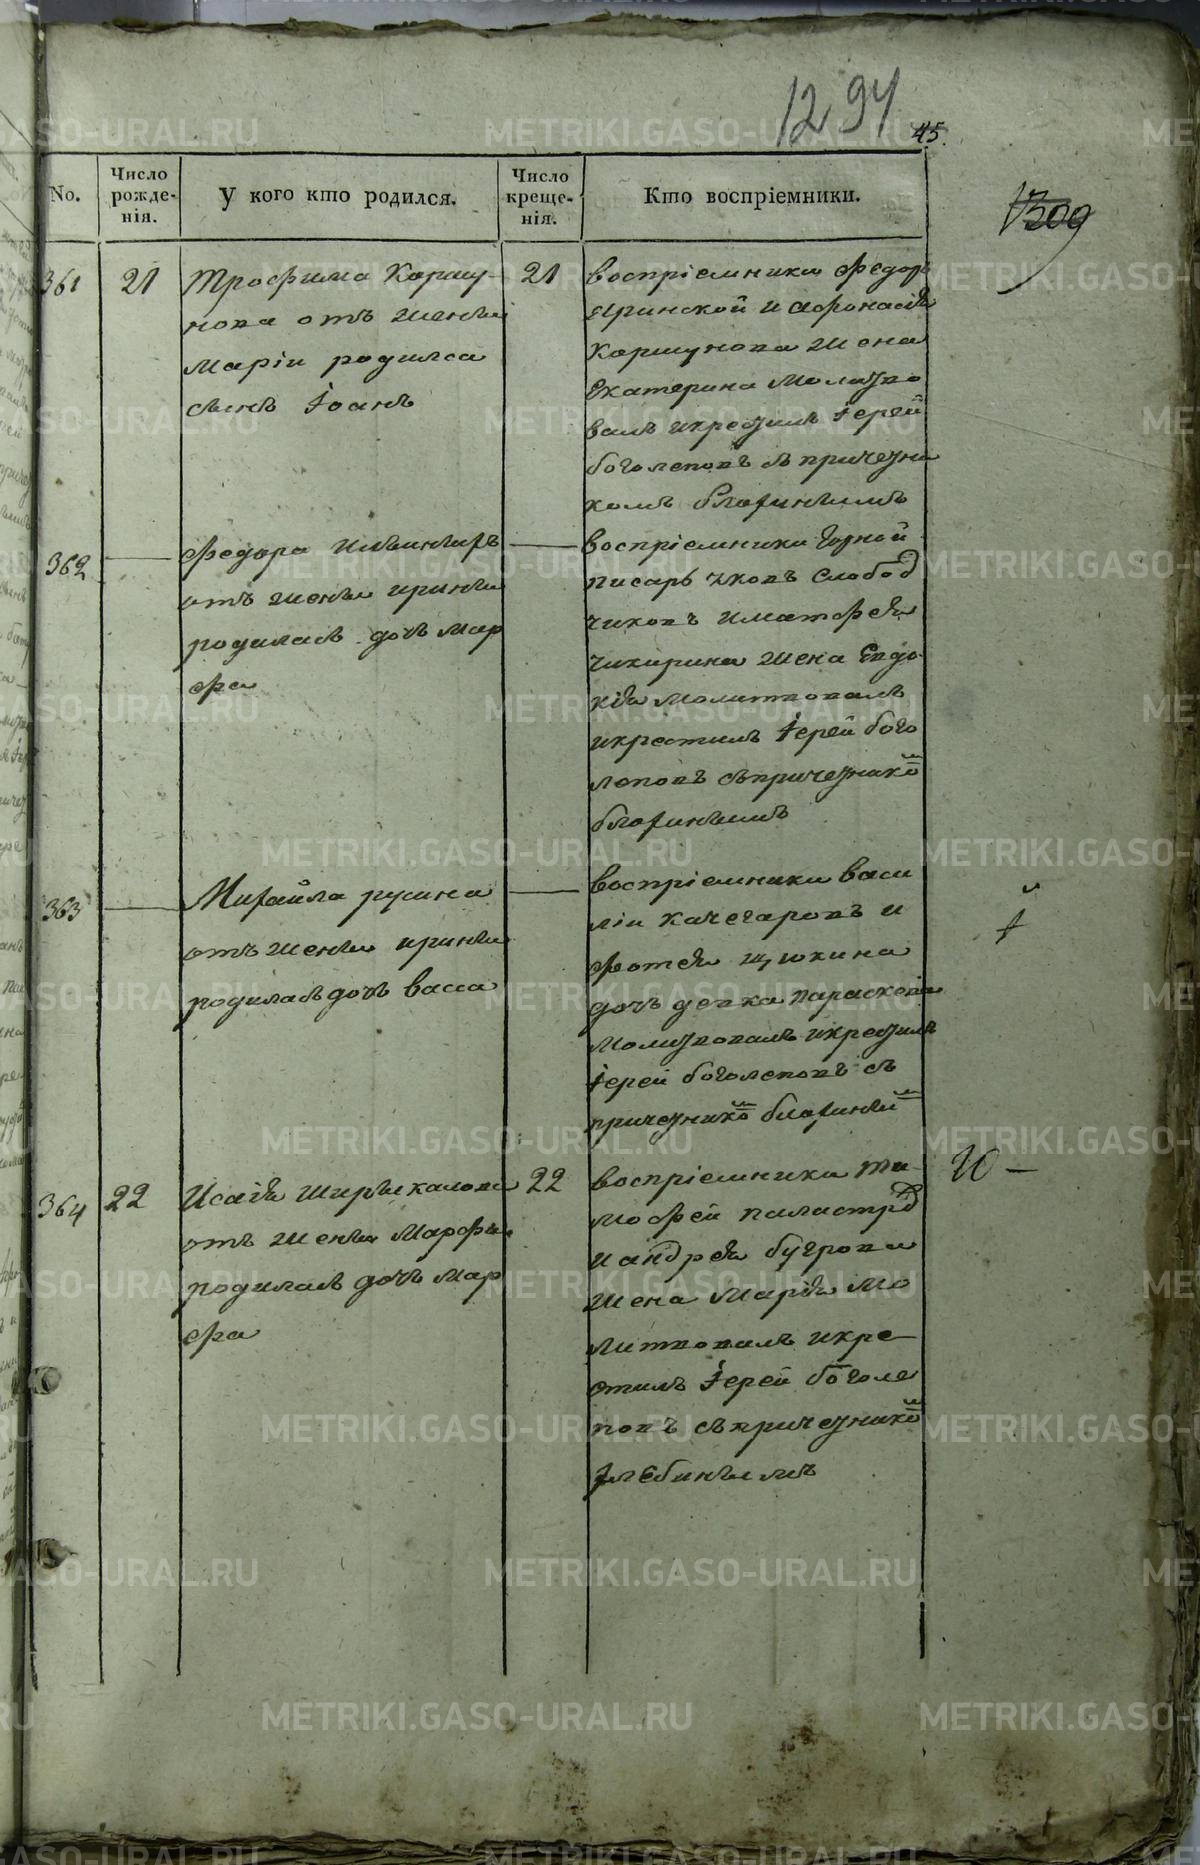 1294
45.
1309
No.
Число рожде-нія.
У кого кто родился.
Число креще-нія.
Кто воспріемники.
361
21
Трофима Коршу-
нова отъ жены
Маріи родился
сынъ Іоанъ
21
воспріемники Федоръ
и Афонасія
Коршунова жена
Екатерина Молитво
валъ и крестилъ Іерей
боголеповъ съ причетни
комъ
362
Федора
отъ жены ирины
родилась дочь Мар
фа
воспріемники горной
писарь яковъ Слобод
чиковъ и матфея
чикирина жена Евдо
кія Молитвовалъ
и крестилъ Іерей бого
леповъ съ причетникомъ
363
Михайла русина
отъ жены ирины
родилась дочь васса
воспріемники васи
ліи Качегаровъ и
фотея щукина
дочь девка параскевия
Молитвовалъ и крестилъ
Іерей боголеповъ съ
причетникомъ
364
22
Исаія Ширыкалова
отъ жены Марфы
родилась дочь Мар
фа
22
воспріемники ти-
мофей
и андрея бугрова
жена Марія Мо
литвовалъ и кре
стилъ Іерей боголе
повъ съ причетникомъ
METRIKI.GASO-URAL.RU